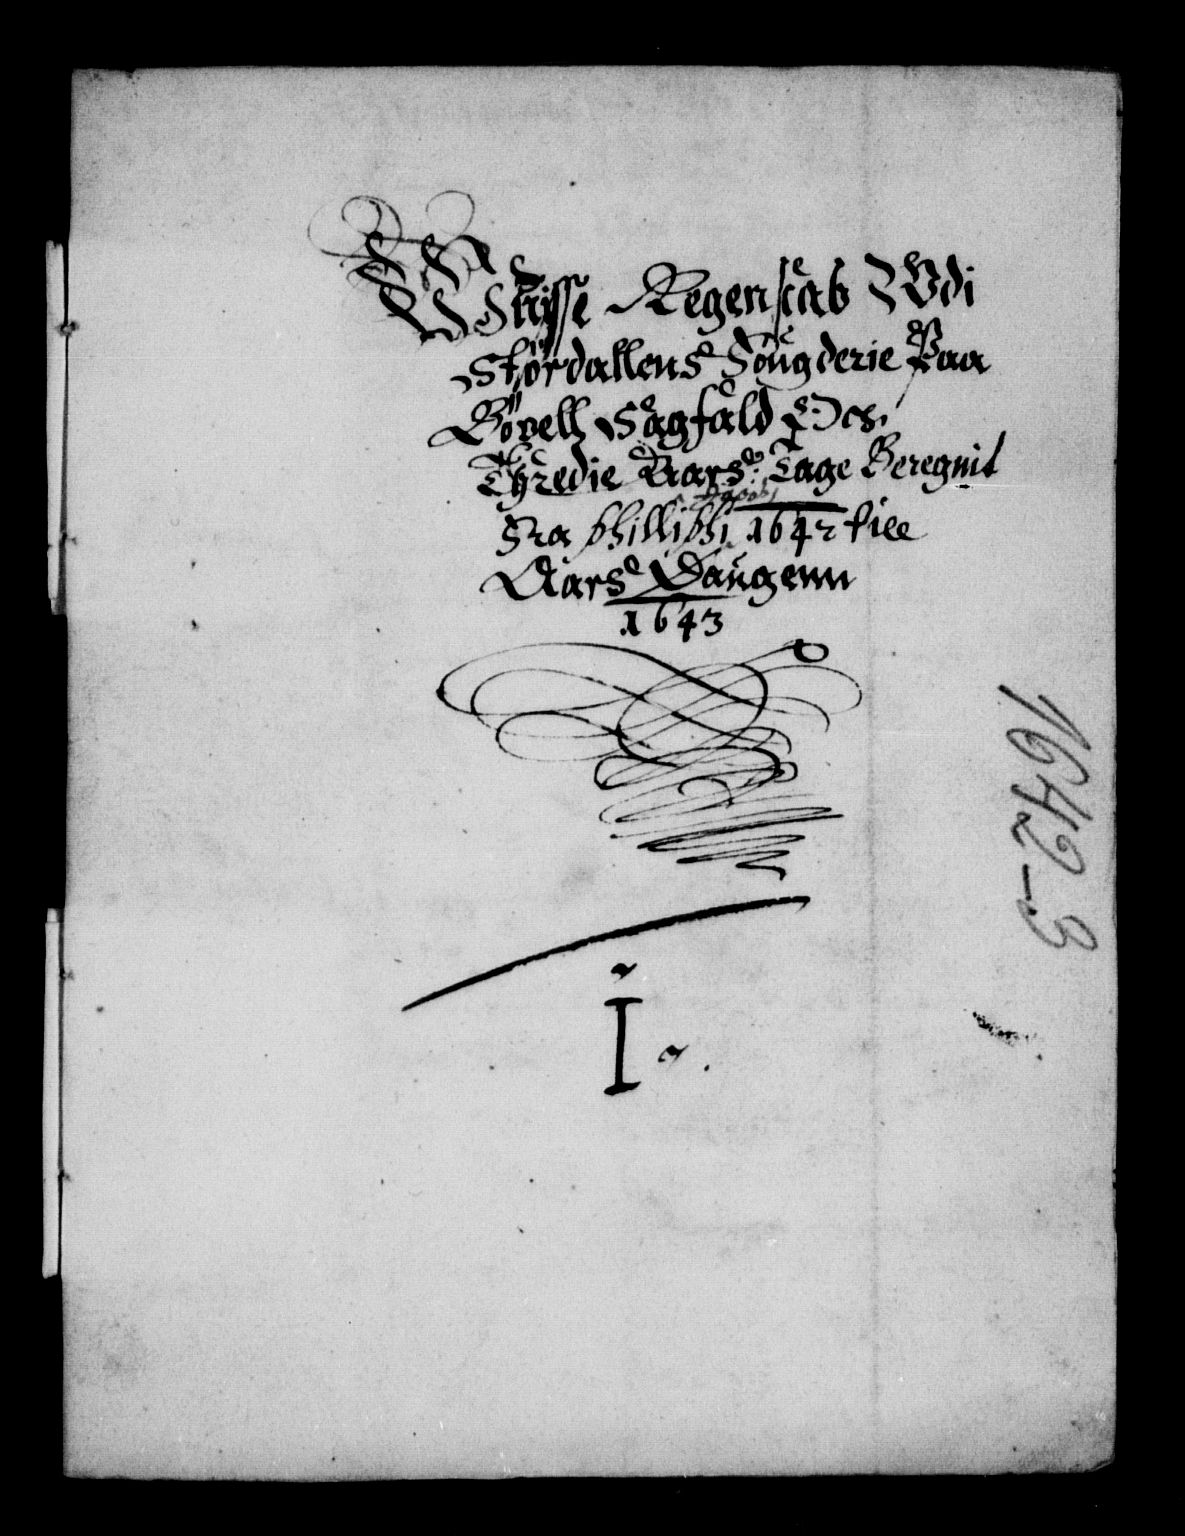 Wisse Regenscab Udi
Størdallens Fougderie Paa
Bøxell Sagfald Etc.
Thredie Aars Tage Beregnit
Jacobj
Fra Philliphi 1642 till
Aars Daugenn
1643
I
1642-3